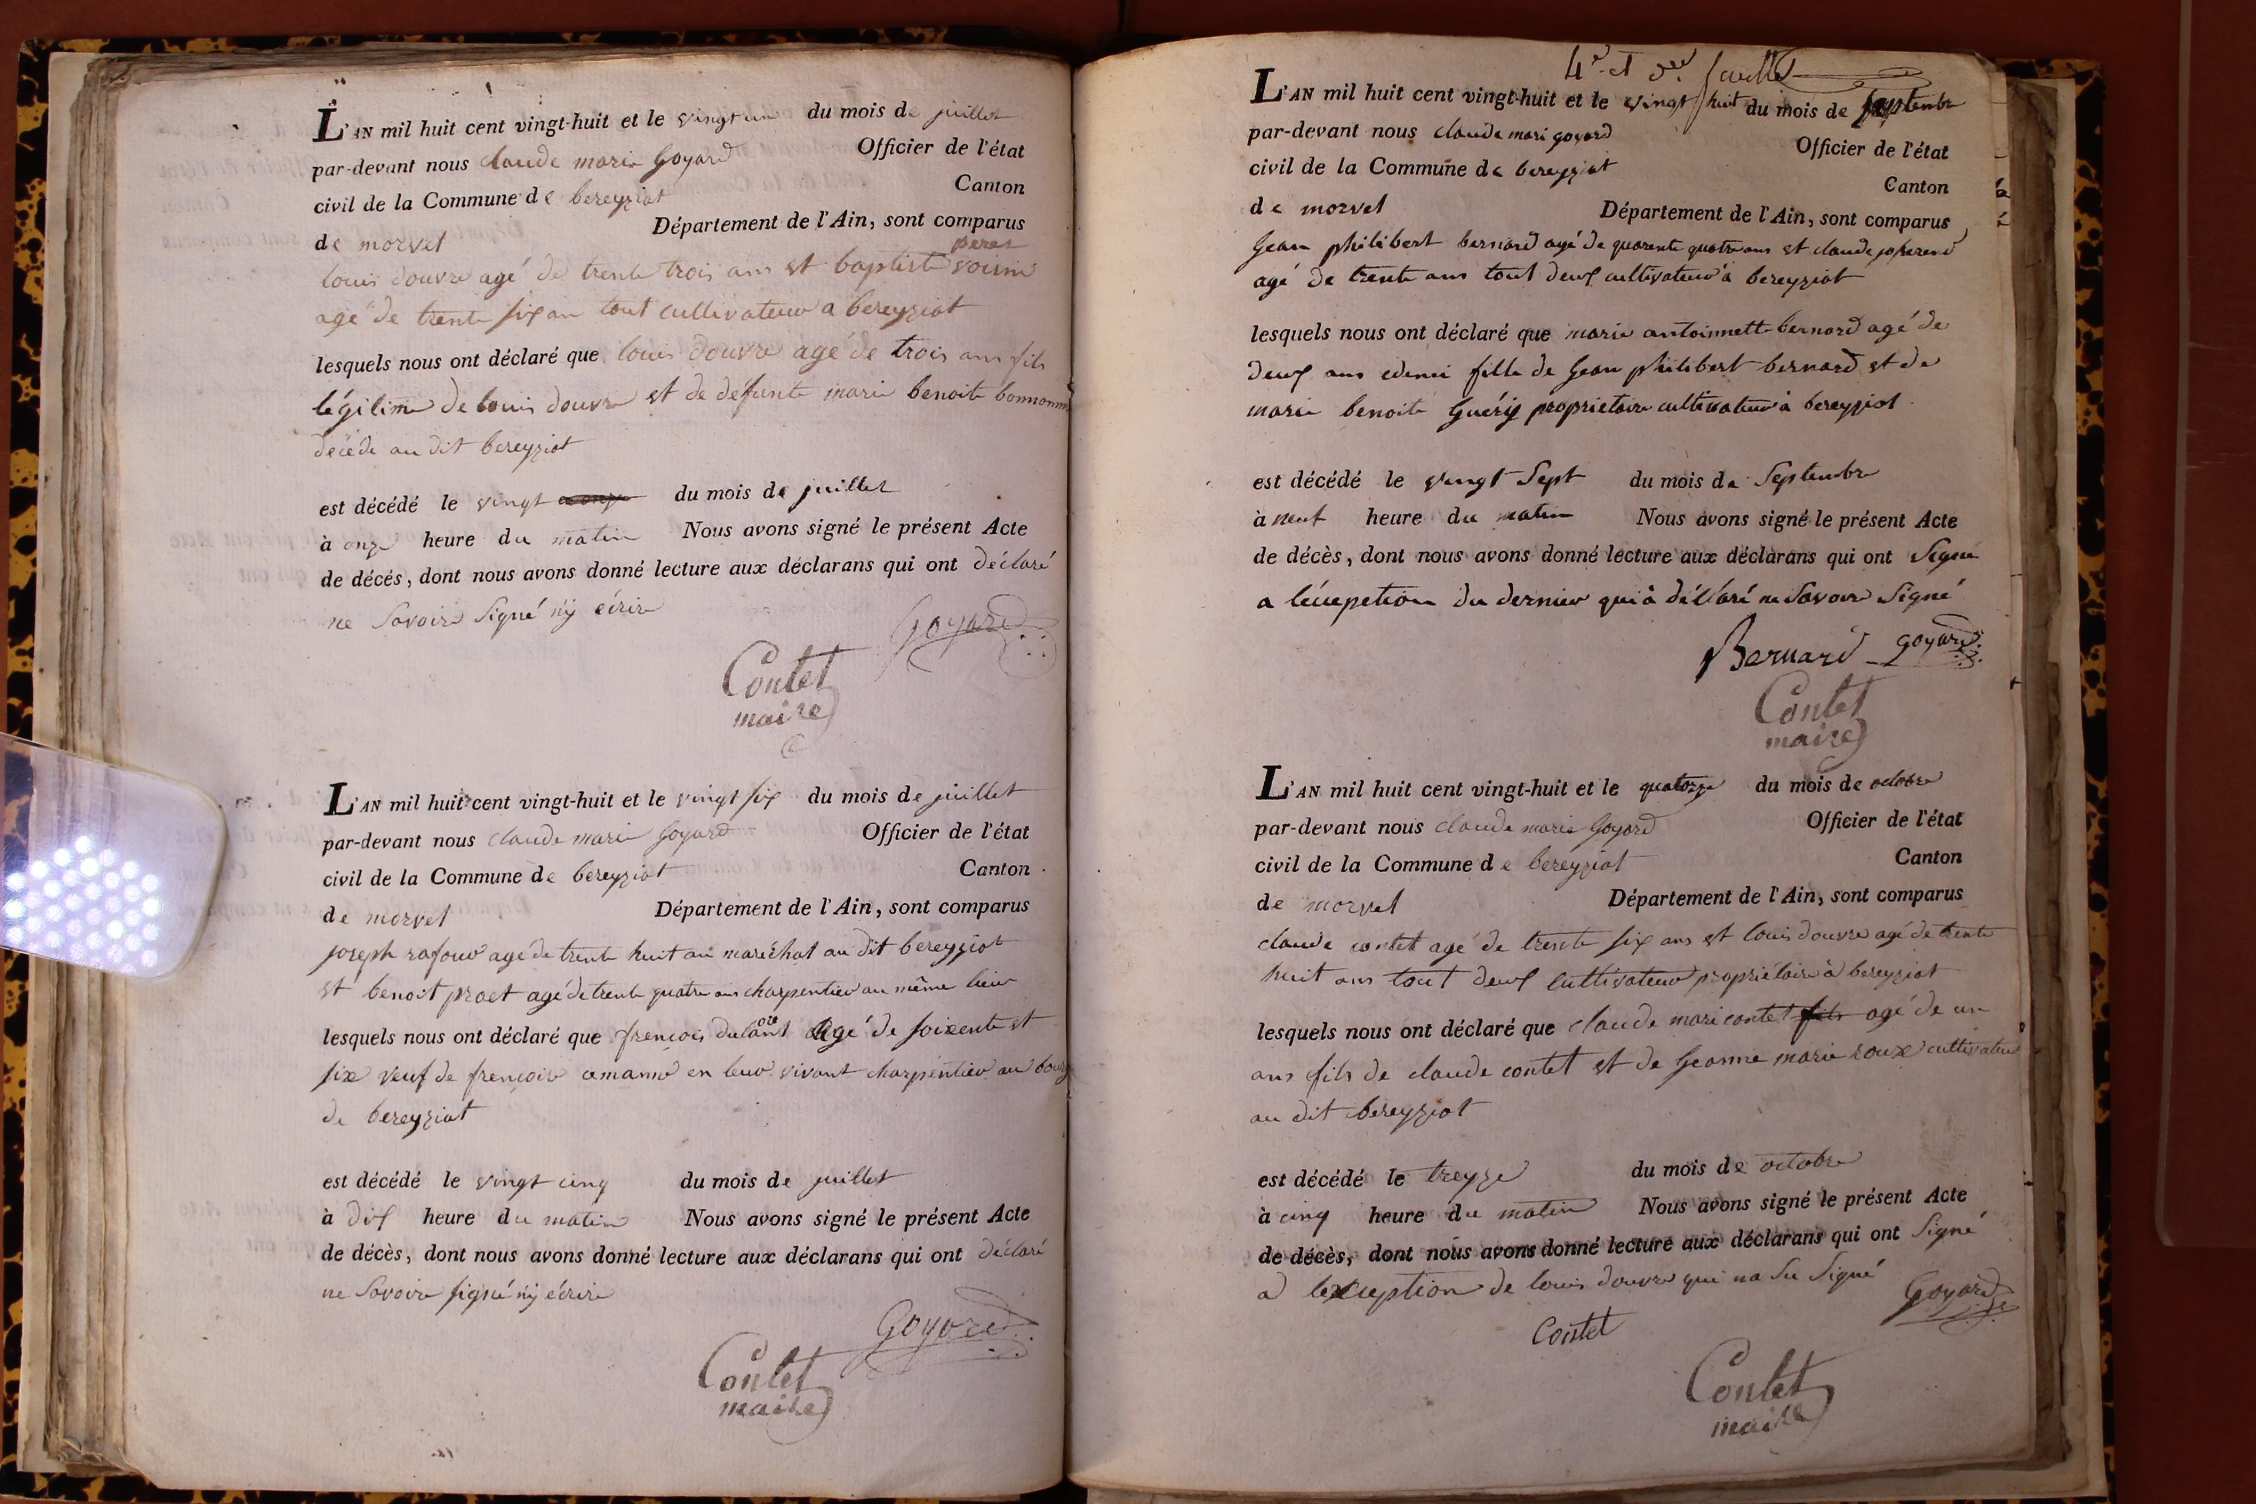 L'AN mil huit cent vingt-huit et le vingt un du mois de juillet
par-devant nous claude marie Goyard Officier de l'état
civil de la Commune de bereyziat Canton
de morvel Département de l'Ain, sont comparus
peret
louis douvre agé de trente trois ans et baptiste voisin
agé de trente six an tout cultivateur a bereyziat
lesquels nous ont déclaré que louis douvre agé de trois ans fils
légilime de louis douvre et de défunte marie benoite bonnomm
décédé au dit bereyziat
est décédé le vingt du mois de juillet
à onze heure du matin Nous avons signé le présent Acte
de décés, dont nous avons donné lecture aux déclarans qui ont déclaré
ne Savoir Signé nÿ écrire
Goyard
Contet
maire
L'AN mil huit cent vingt-huit et le vingt six du mois de juillet
par-devant nous claude marie Goyard Officier de l'état
civil de la Commune de bereyziat Canton
de morvel Département de l'Ain, sont comparus
joseph rafour agé de trente huit an maréchal au dit bereyziat
et benoit proet agé de trente quatre ans charpentier au même lieu
lesquels nous ont déclaré que françois agé de soixente et
six veuf de françoise en leur vivant charpentier au bourg
de bereyziat
est décédé le vingt cinq du mois de juillet
à dix heure du matin Nous avons signé le présent Acte
de décès, dont nous avons donné lecture aux déclarans qui ont déclaré
ne Savoir signé nÿ écrire
Goyard
Contet
maire
4e et dre feuillet
L'AN mil huit cent vingt-huit et le vingt huit du mois de septembre
par-devant nous claude mari goyard Officier de l'état
civil de la Commune de bereyziat Canton
de morvel Département de l'Ain, sont comparus
Jean philibert bernard agé de quarente quatre ans et claude
agé de trente ans tout deux cultivateur à bereyziat
lesquels nous ont déclaré que marie antoinnett bernard agé de
deux ans fille de Jean philibert bernard et de
marie benoite Guérÿ propriétaire cultivateur à bereyziat
est décédé le vingt Sept du mois de Septembre
à neuf heure du matin Nous avons signé le présent Acte
de décès, dont nous avons donné lecture aux déclarans qui ont Signé
a lécepetion du dernier qui à déclaré ne Savoir Signé
Bernard Goyard
Contet
maire
L'AN mil huit cent vingt-huit et le quatorze du mois de octobre
par-devant nous claude marie Goyard Officier de l'état
civil de la Commune de bereyziat Canton
de morvel Département de l'Ain, sont comparus
claude contet agé de trente six ans et louis douvre agé de trente
huit ans tout deux cultivateur propriétaire à bereyziat
lesquels nous ont déclaré que claude mari contet fils agé de un
ans fils de claude contet et de Jeanne marie roux cultivateur
au dit bereyziat
est décédé le treyze du mois de octobre
à cinq heure du matin Nous avons signé le présent Acte
de décès, dont nous avons donné lecture aux déclarans qui ont Signé
a lexception de louis douvre qui na Su Signé
Goyard
Contet
Contet
maire